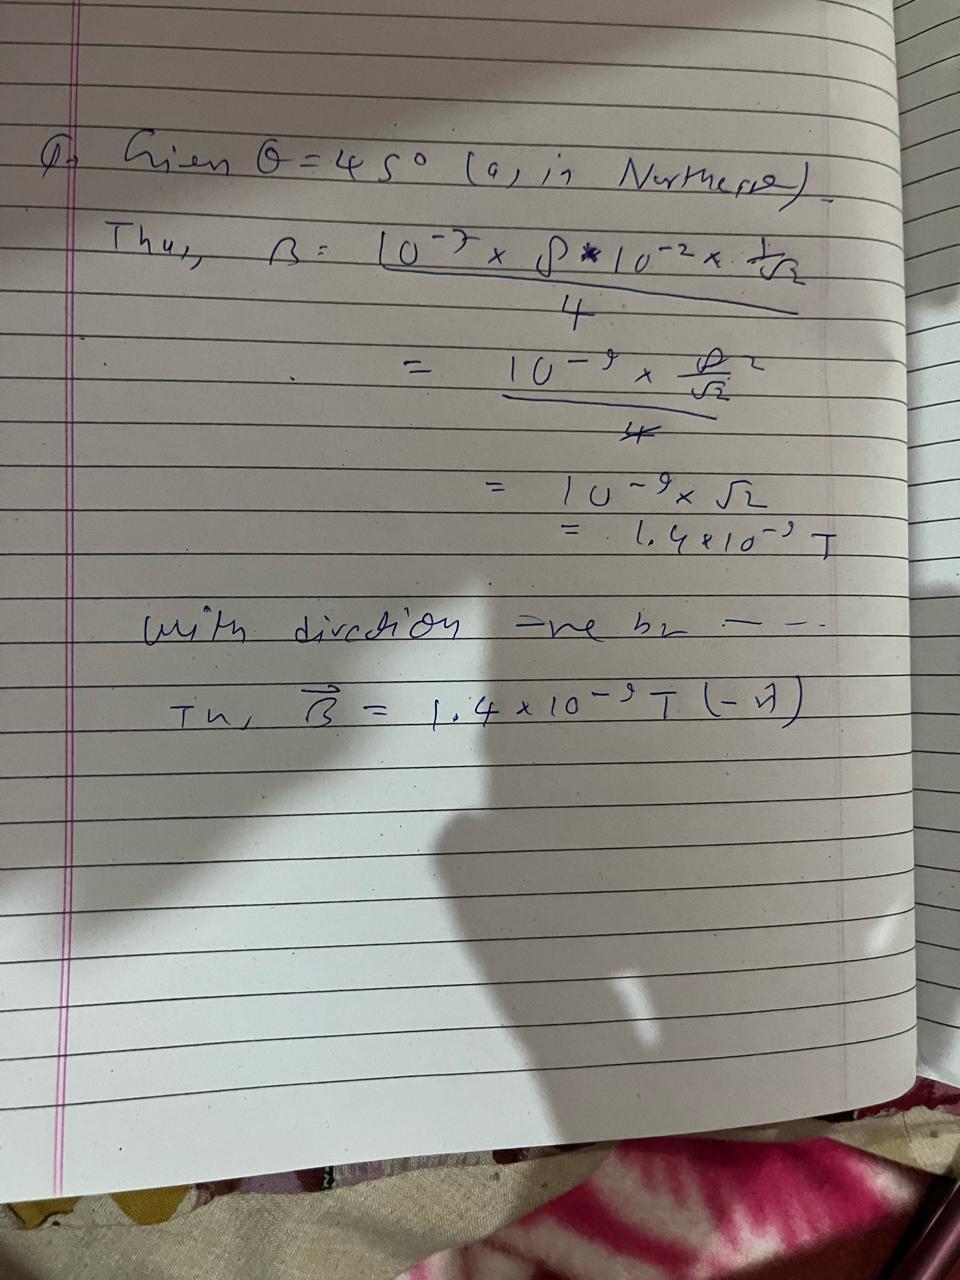 Given θ = 45° (as in Northeast)
Thus, B = 10⁻⁷ × 8 * 10⁻² × 1/√2
4
= 10⁻⁹ × 8/√2 2
4
= 10⁻⁹ × √2
= 1.4 × 10⁻⁹ T
with direction
Thus, B⃗ = 1.4 × 10⁻⁹ T